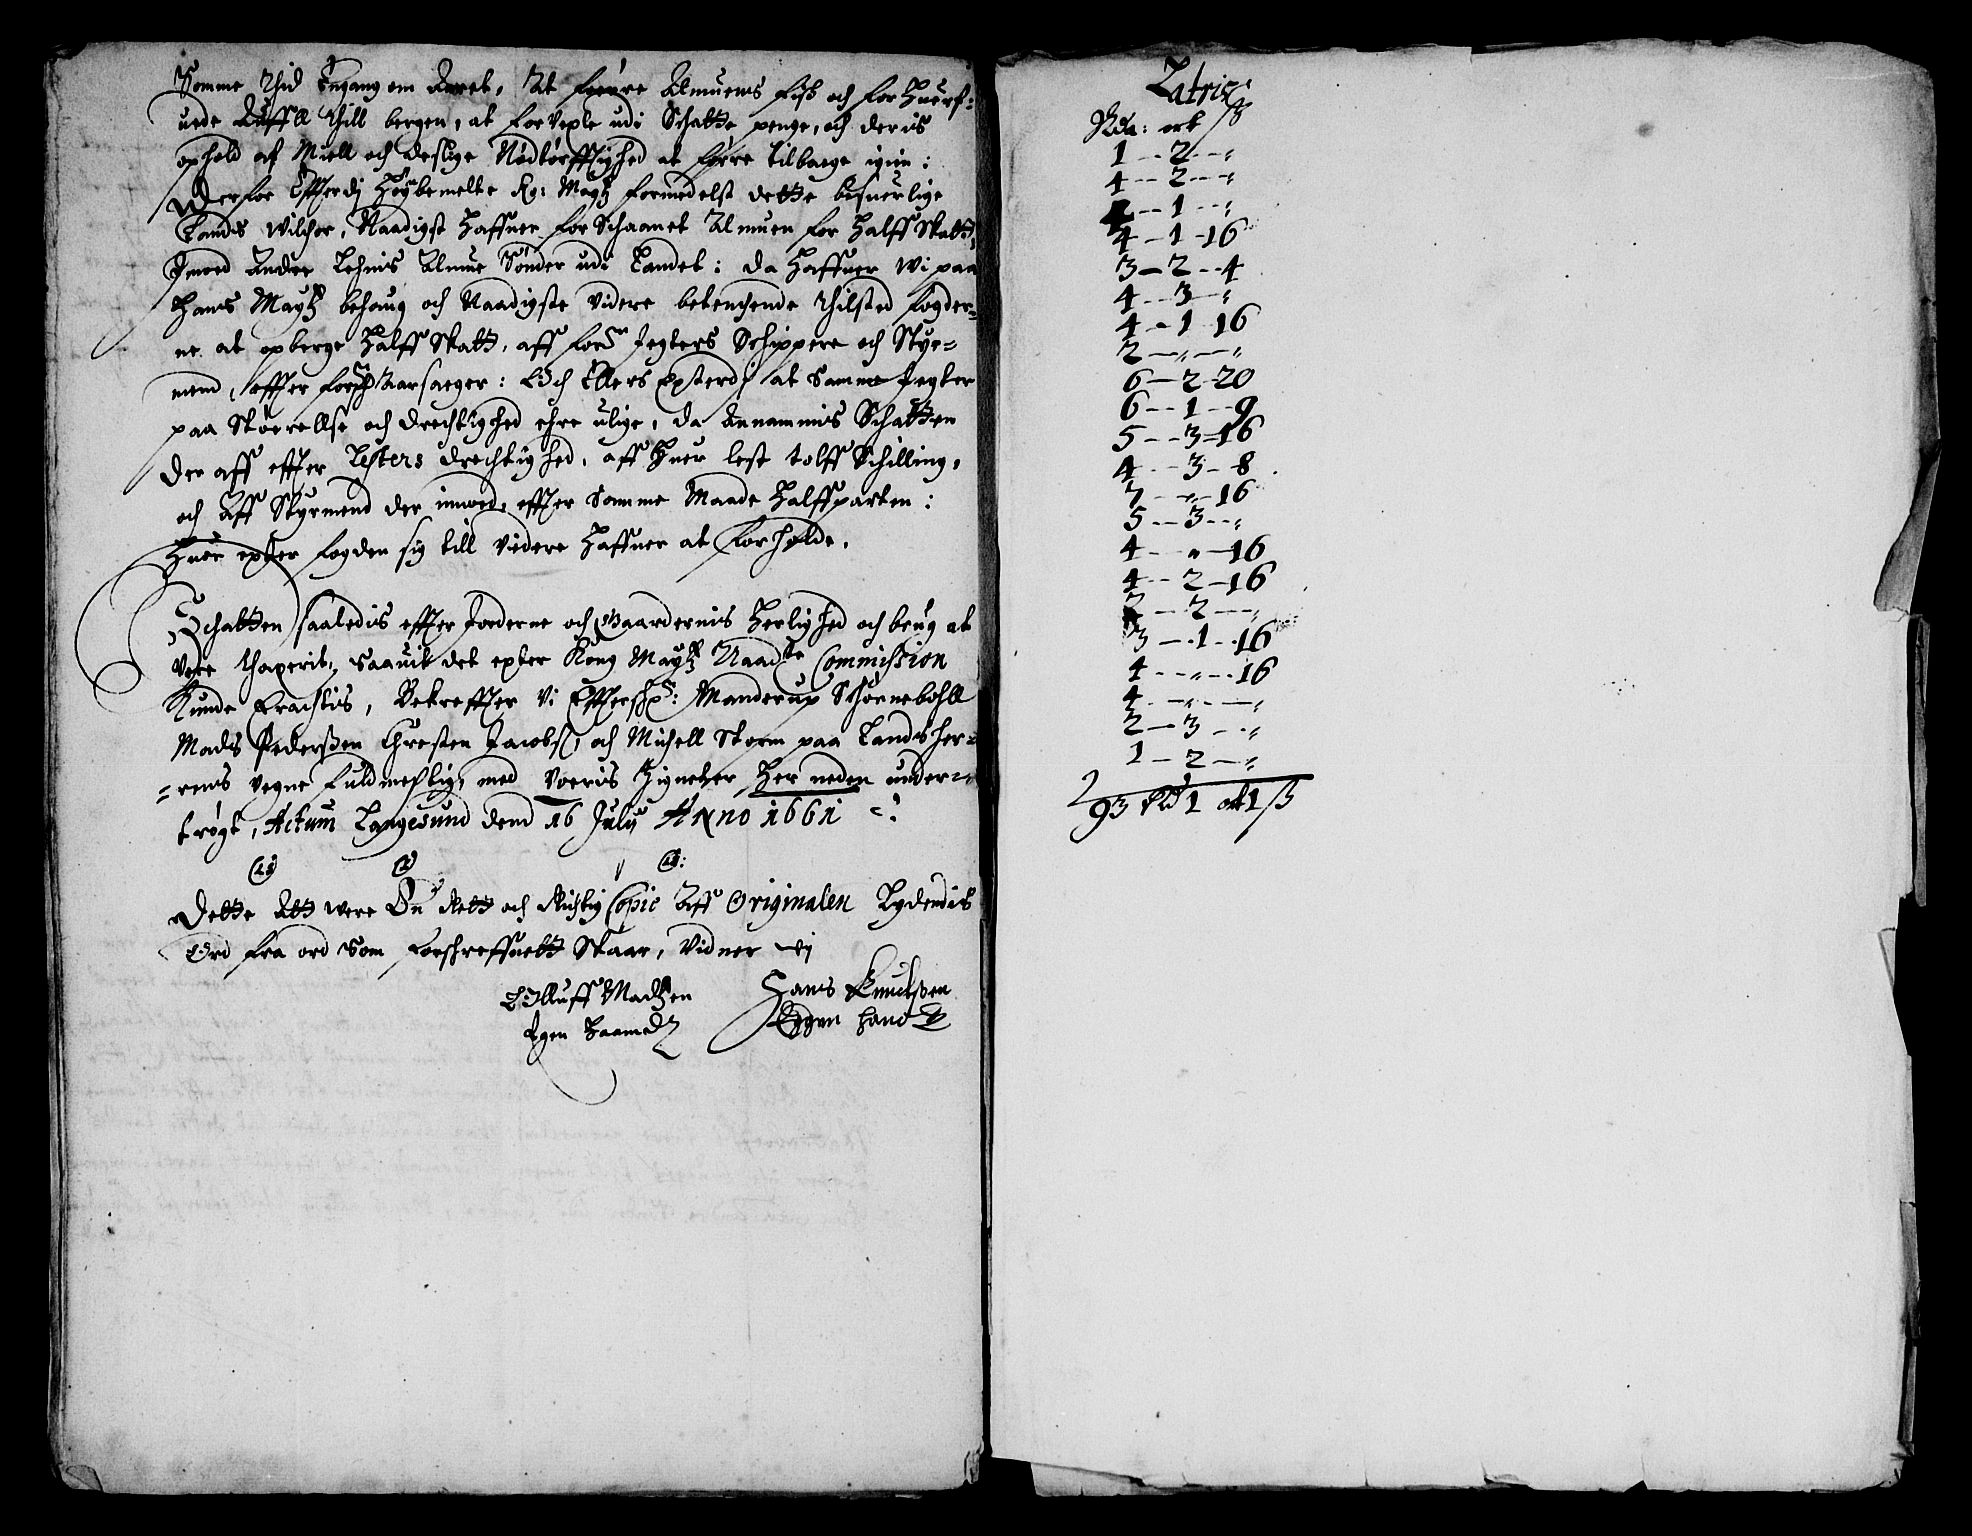 Somme thid Engang om Aaret, At føre Almuens fisk och forhuerf-
uede  thill bergen, at forvexle udi Schatte penge, och deris
ophold af Miell och deslige Nødtørfftighed at føre tilbage igien:
Derfor Effterdj Høybemelte Ko: Maytz formedelst dette besuerlige
Landts Wilchor, Naadigst haffuer forschaanet Almuen for halff Skatt,
Jmoed Andre Lehnis Almue Sønder udi Landet: da haffuer wi paa
Hans Maytz behaug och Naadigste videre betenchende thilsted fogder-
ne at opberge halff Skatt, aff fors Jegters Schippere och Styr-
mend, effter Aarsager: Och Ellers Epsterdj at Samme Jegter
paa Størrellse och drechtighed ehre ulige, da Annammis Schatten
der aff effter Lesters drechtighed, aff huer lest tolff Schilling,
och aff Styrmend der imoed, effter Samme Maade halffparten:
Huor epter fogden sig till videre haffuer at forholde.
Schatten saaledis effter Jorderne och Gaardernis herlighed och brug at
Vere thaxerit, Saauit det epter Kong Maytz Naadste Commission
Kunde Erachtis, Bekreffter Vi Effterschr: Manderup Schønebøhll
Mads Pederßen Chresten Jacobs, och Michell Storm paa Landtsher-
=rens vegne fuldmechtig, med voeris Zigneter her neden under=
trøgt, Actum Langesund dend 16 Julij Anno 1661
(LS) (LS) (LS):
Dette Att were En Rett och Richtig Copie Aff Originalen Lydendis
Ord fra ord Som forschreffuett Staar, Vidner vj
Olluff Madtzen Hans Knudtßen
Egen haand Eggen hand
Latris
Rdr: ort ß
1 -- 2 -- "
4 -- 2 -- "
2 -- 1 -- "
4 - 1 - 16
3 - 2 -- 4
4 -- 3 -- "
4 - 1 16
2 -- " -- "
6 -- 2 - 20
6 -- 1 -- 9
5 -- 3 - 16
4 -- 3 - 8
7 -- " - 16
5 -- 3 -- "
4 -- " - 16
4 -- 2 - 16
2 -- 2 -- "
3 -- 1 - 16
4 -- " -- 16
4 -- " -- "
2 -- 3 -- "
1 - 2 - "
93 Rd 1 ort 1 ß